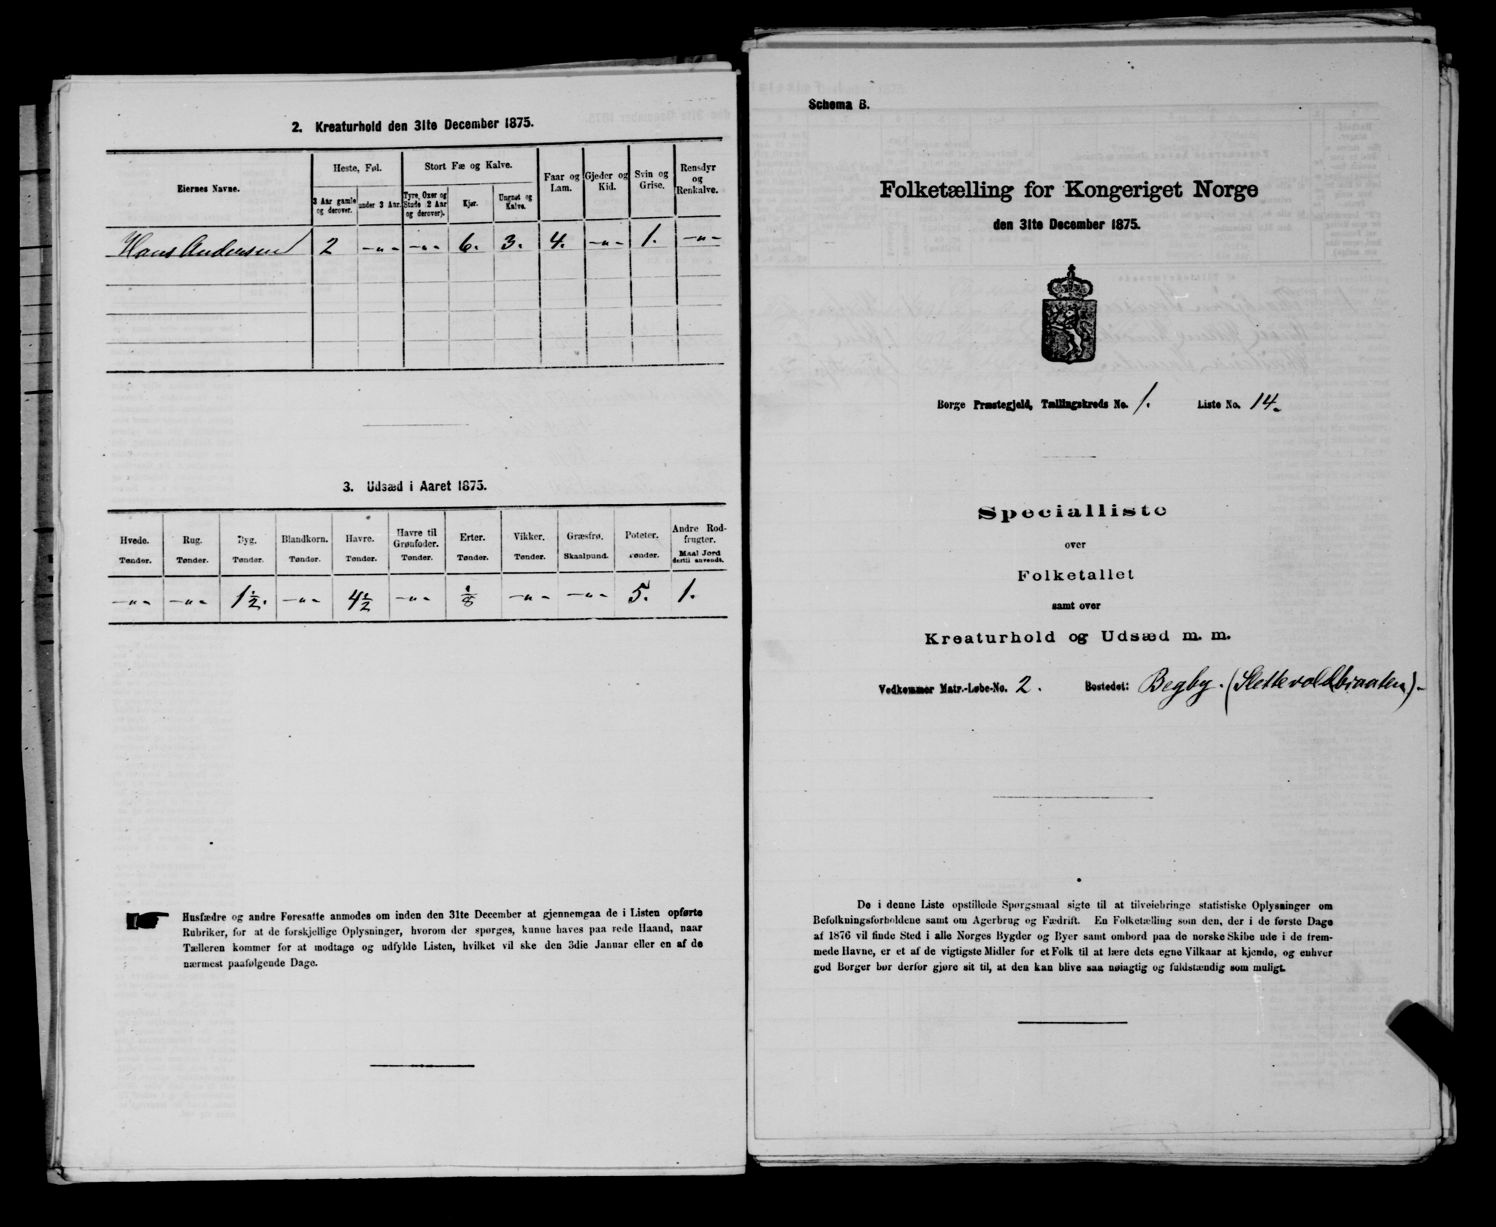 2. Kreaturhold den 31te December 1875.
Eiernes Navne.
Heste, Føl.
Stort Fæ og Kalve.
Faar og Lam.
Gjeder og Kid.
Svin og Grise.
Rensdyr og Renkalve.
3 Aar gamle og derover.
under 3 Aar.
Tyre, Oxer og Stude (2 Aar og derover).
Kjør.
Ungnøt og Kalve.
Hans Andersen 2 -„- -„- 6. 3. 4. -„- 1. -„-
3. Udsæd i Aaret 1875.
Hvede. Rug. Byg. Blandkorn. Havre. Havre til Grønfoder. Erter. Vikker. Græsfrø. Poteter. Andre Rodfrugter.
Tønder. Tønder. Tønder. Tønder. Tønder. Tønder. Tønder. Tønder. Skaalpund. Tønder. Maal Jord dertil anvendt.
-„- -„- 1½. -„- 4½ -„- ⅛ -„- -„- 5. 1.
Husfædre og andre Foresatte anmodes om inden den 31te December at gjennemgaa de i Listen opførte
Rubriker, for at de forskjellige Oplysninger, hvorom der spørges, kunne haves paa rede Haand, naar
Tælleren kommer for at modtage og udfylde Listen, hvilket vil ske den 3die Januar eller en af de
nærmest paafølgende Dage.
Schema B.
Folketælling for Kongeriget Norge
den 31te December 1875.
Borge Præstegjeld, Tællingskreds No. 1. Liste No. 14.
Specialliste
over
Folketallet
samt over
Kreaturhold og Udsæd m. m.
Vedkommer Matr.-Løbe-No. 2. Bostedet: Begby. (Slettevoldbraaten).
De i denne Liste opstillede Spørgsmaal sigte til at tilveiebringe statistiske Oplysninger om
Befolkningsforholdene samt om Agerbrug og Fædrift. En Folketælling som den, der i de første Dage
af 1876 vil finde Sted i alle Norges Bygder og Byer samt ombord paa de norske Skibe ude i de frem-
mede Havne, er et af de vigtigste Midler for et Folk til at lære dets egne Vilkaar at kjende, og enhver
god Borger bør derfor gjøre sit til, at den kan blive saa nøiagtig og fuldstændig som muligt.